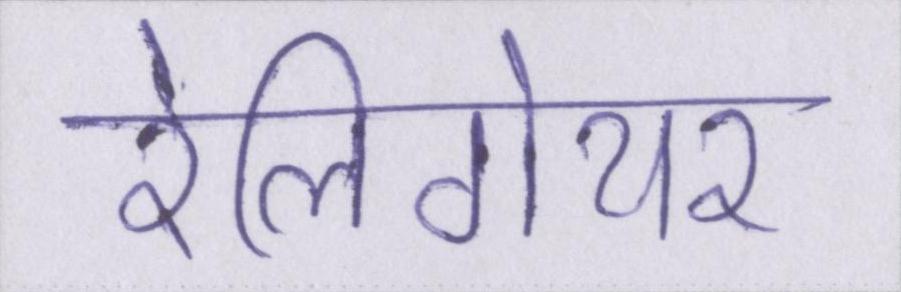 रेलिगेयर